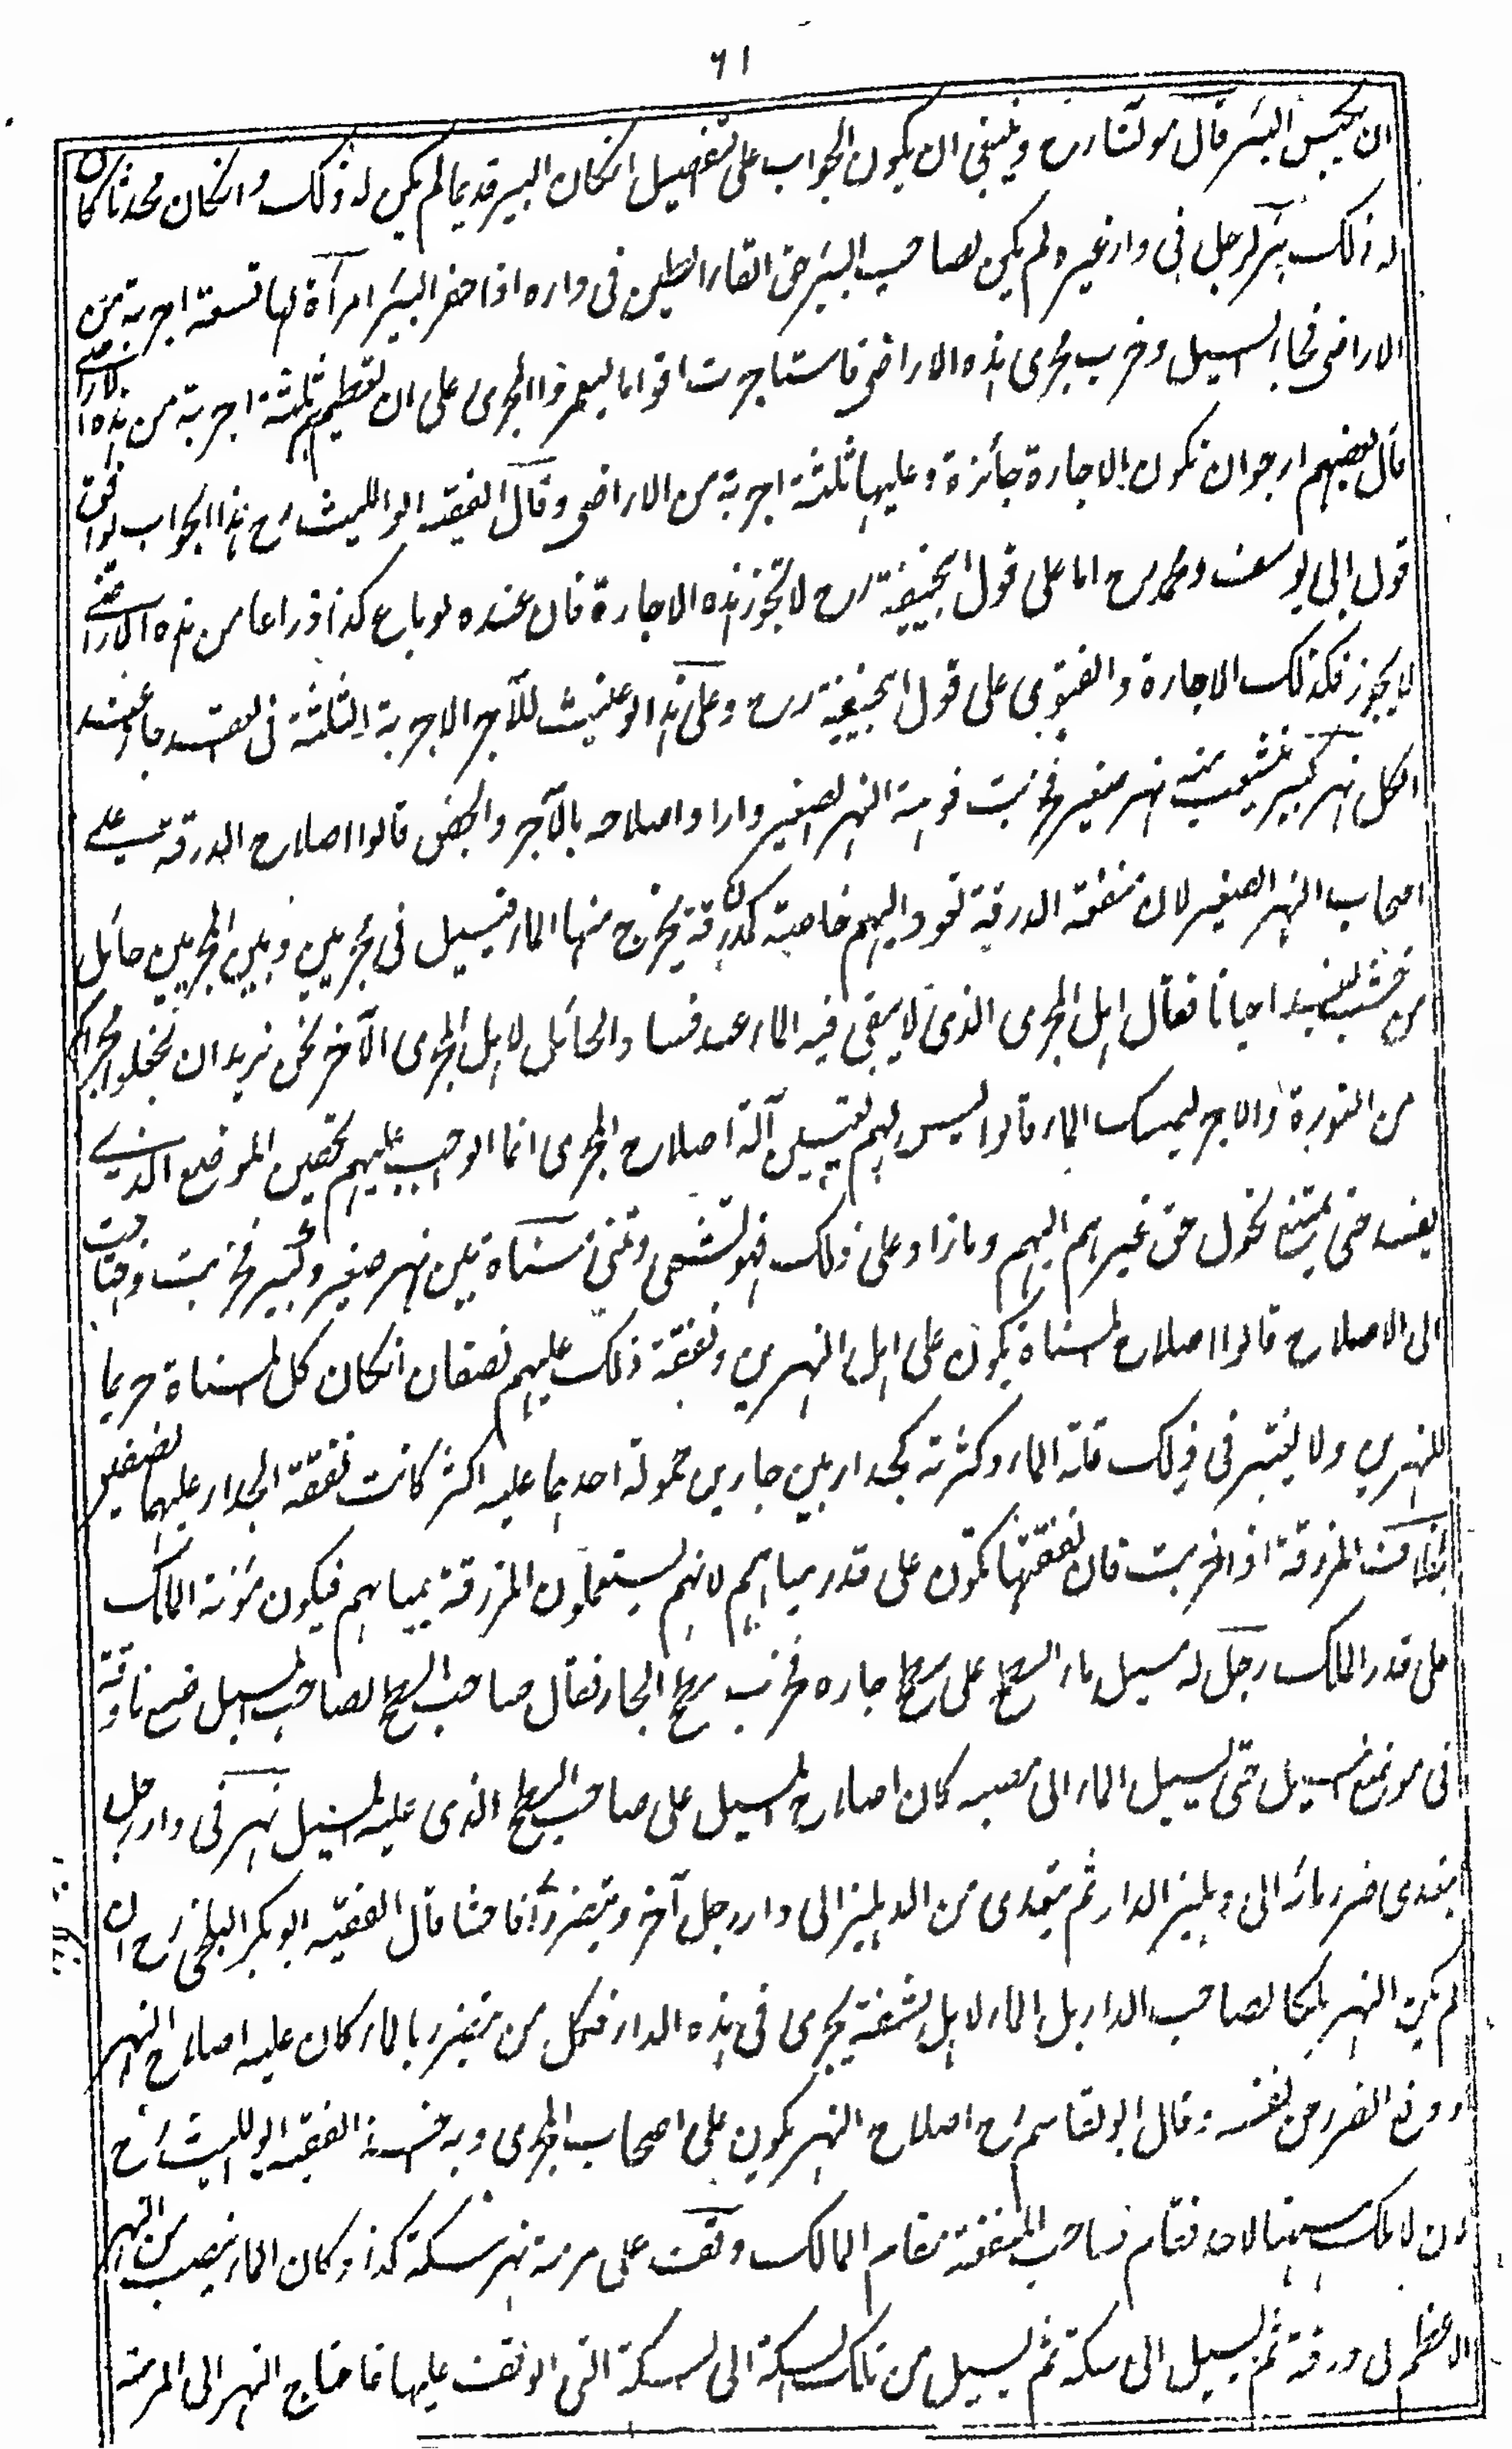 ٦١
ان يكبس البئر قال مولنا رض وينبغى ان يكون الجواب على تفصيل انكان البير قديما لم يكن له ذلك وانكان محدثا كان
له ذلك بئر لرجل فى دار غيره لم يكن لصاحب البئر حق القاء الطين فى داره اذا حفر البئر امرأة لها تسعة اجربة من
الاراضى فجاء السيل وخرب مجرى هذه الاراضى فاستاجرت اقواما ليعمروا المجرى على ان تعطيهم ثلثة اجربة من هذه الاراضى
قال بعضهم ارجو ان تكون الاجارة جائزة وعليها ثلثة اجربة من الاراضى وقال الفقيه ابو الليث رح هذا الجواب يوافق
قول ابى يوسف ومحمد رح اما على قول ابيحنيفة رح لا تجوز هذه الاجارة فان عنده لو باع كذا ذراعا من هذه الاراضى
لا يجوز فكذلك الاجارة والفتوى على قول ابيحنيفة رح وعلى هذا لو عينت للآجر الاجربة الثلثة فى العقد جاز عند
الكل نهر كبير يتشعب منه نهر صغير فخربت فوهة النهر الصغير وارادوا اصلاحه بالآجر والجص قالوا اصلاح الدرقة على
اصحاب النهر الصغير لان منفعة الدرقة تعود اليهم خاصة كدرقة يخرج منها الماء فيسيل فى مجريين وبين المجريين حائل
من خشب يفسد احيانا فقال اهل المجرى الذى لا يبقى فيه الماء عند فساد الحائل لاهل المجرى الآخر نحن نريد ان تجعلوا مجراكم
من النورة والاجر ليمسك الماء قالوا ليس لهم تعيين آلة اصلاح المجرى انما الواجب عليهم تحصين الموضع الذى
يفسد حتى يمتنع تحول حق غيرهم اليهم وما زاد على ذلك فهو تشهى وتمنى مسناة بين نهر صغير وكبير فخربت واحتاجت
الى الاصلاح قالوا اصلاح المسناة يكون على اهل النهرين ونفقة ذلك عليهم نصفان انكان كل المسناة حريما
للنهرين ولا يعتبر فى ذلك قلة الماء وكثرته كجدار بين جارين حمولة احدهما عليه اكثر كانت نفقة الجدار عليهما نصفين
بخلاف المرزقة اذا خربت فان نفقتها تكون على قدر مياههم لانهم يستعملون المرزقة بمياههم فيكون مؤنة الملك
على قدر الملك رجل له مسيل ماء السطح على سطح جاره فخرب سطح الجار فقال صاحب السطح لصاحب المسيل ضع ناوقة
فى موضع المسيل حتى يسيل الماء الى مصبه كان اصلاح المسيل على صاحب السطح الذى عليه المسيل نهر فى دار رجل
يتعدى ضرر مائه الى دهليز الدار ثم يتعدى من الدهليز الى دار رجل آخر ويتضرر ضررا فاحشا قال الفقيه ابو بكر البلخى رح ان
لم يكن النهر ملكا لصاحب الدار بل الماء لاهل الشفة يجرى فى هذه الدار فكل من يتضرر بالماء كان عليه اصلاح النهر
ودفع الضرر عن نفسه وقال ابو القاسم رح اصلاح النهر يكون على اصحاب المجرى وبه اخذ الفقيه ابو الليث رح
لان لا ملك ههنا لاحد فقام صاحب المنفعة مقام المالك وقف على مرمة نهر سكة كذا وكان الماء ينصب من النهر
الاعظم فى درقة ثم يسيل الى سكة ثم يسيل من تلك السكة الى السكة التى الوقف عليها فاحتاج النهر الى المرمة